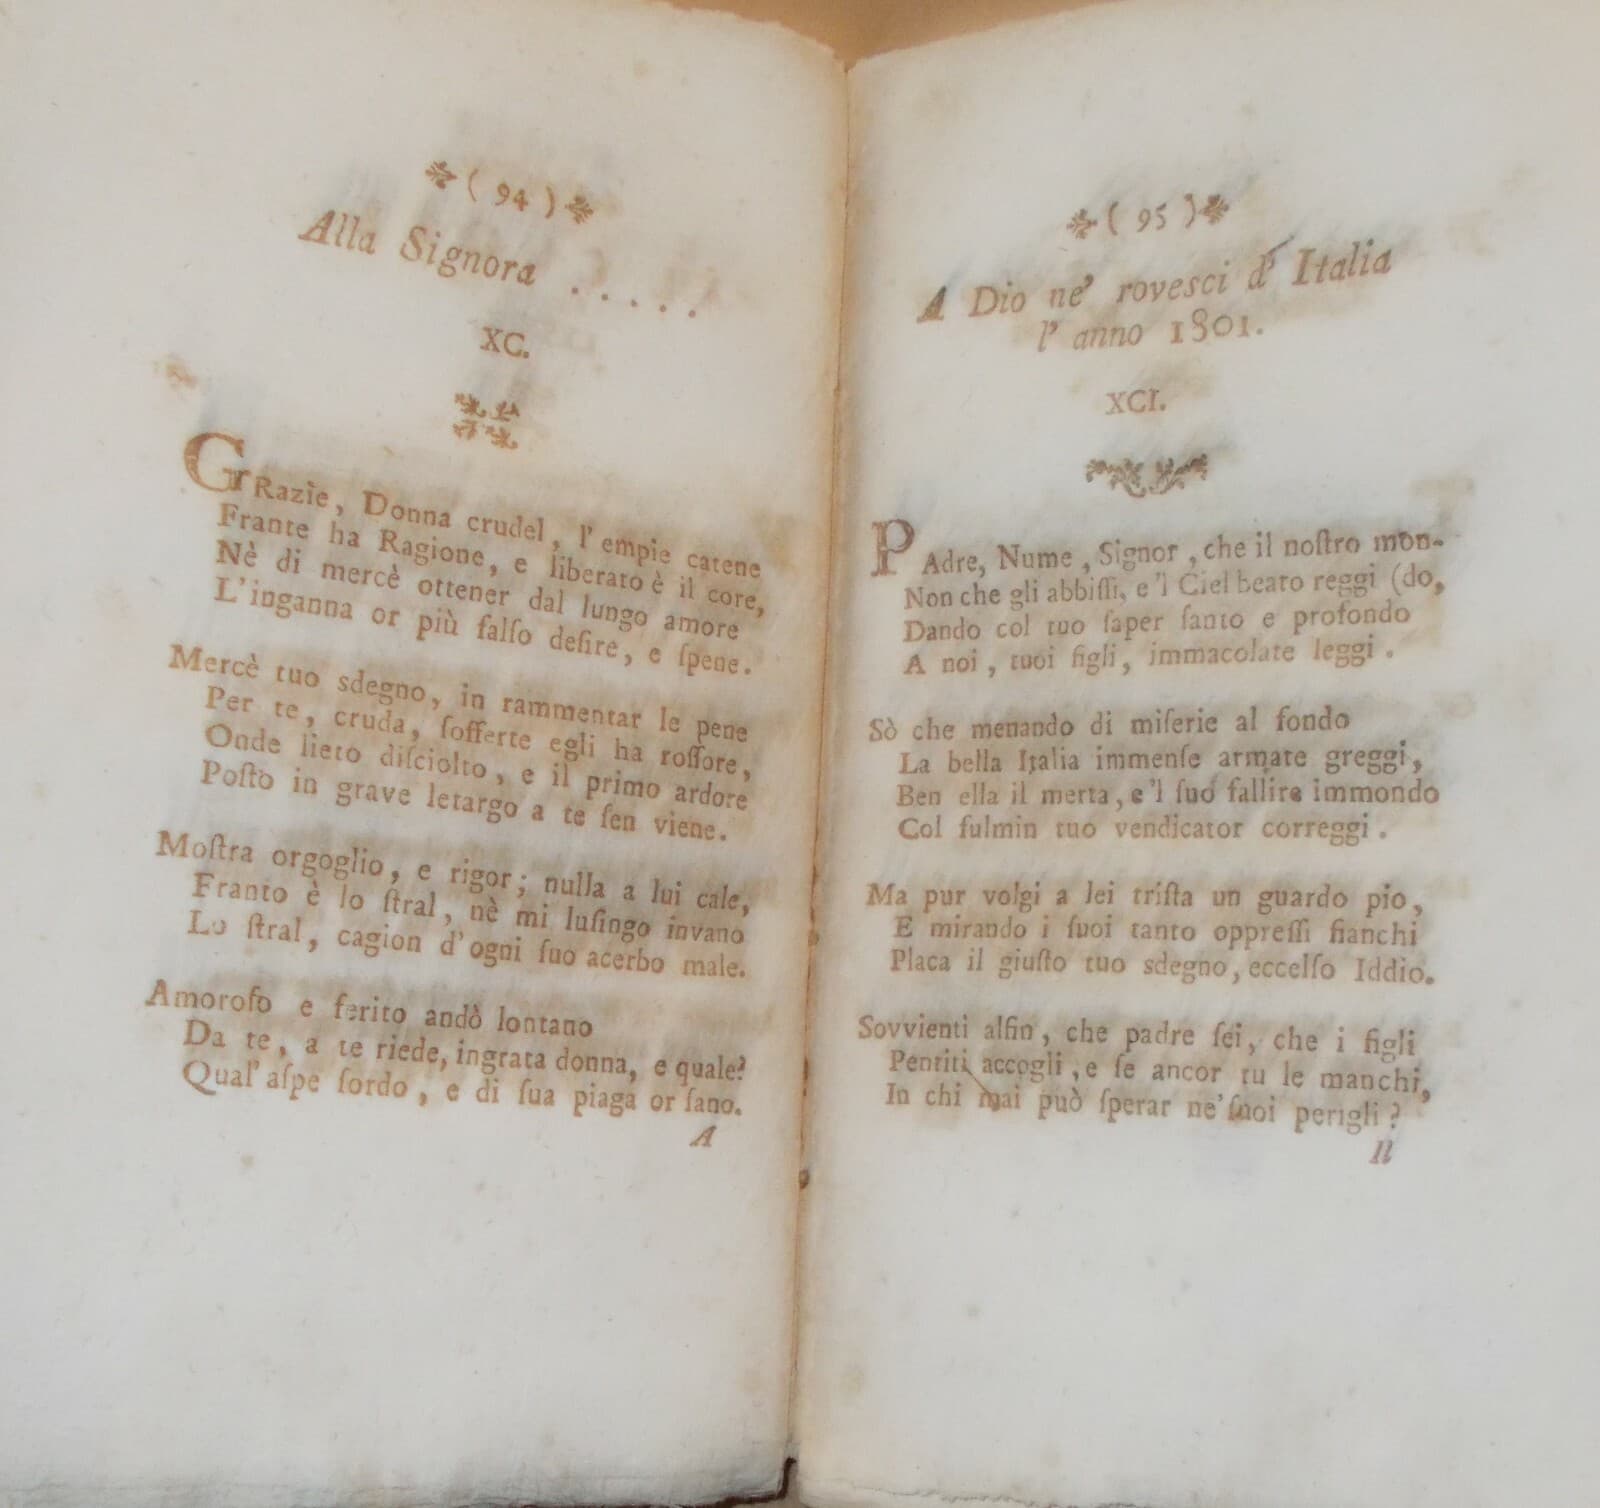 ( 94 )
Alla Signora . . . . .
XC.
GRazie, Donna crudel, l' empie catene
Frante ha Ragione, e liberato è il core,
Nè di mercè ottener dal lungo amore
L'inganna or più falſo deſire, e ſpene.
Mercè tuo sdegno, in rammentar le pene
Per te, cruda, ſofferte egli ha roſſore,
Onde lieto diſciolto, e il primo ardore
Poſto in grave letargo a te ſen viene.
Moſtra orgoglio, e rigor; nulla a lui cale,
Franto è lo ſtral, nè mi luſingo invano
Lo ſtral, cagion d'ogni ſuo acerbo male.
Amoroſo e ferito andò lontano
Da te, a te riede, ingrata donna, e quale?
Qual' aſpe ſordo, e di ſua piaga or ſano.
A
( 95 )
A Dio ne' rovesci d' Italia
l' anno 1801.
XCI.
PAdre, Nume, Signor, che il noſtro mon-
Non che gli abbiſſi, e 'l Ciel beato reggi (do,
Dando col tuo ſaper ſanto e profondo
A noi, tuoi figli, immacolate leggi.
Sò che menando di miſerie al fondo
La bella Italia immenſe armate greggi,
Ben ella il merta, e 'l ſuo fallire immondo
Col fulmin tuo vendicator correggi.
Ma pur volgi a lei triſta un guardo pio,
E mirando i ſuoi tanto oppreſſi fianchi
Placa il giuſto tuo sdegno, eccelſo Iddio.
Sovvienti alfin, che padre ſei, che i figli
Pentiti accogli, e ſe ancor tu le manchi,
In chi mai può ſperar ne' ſuoi perigli?
Il